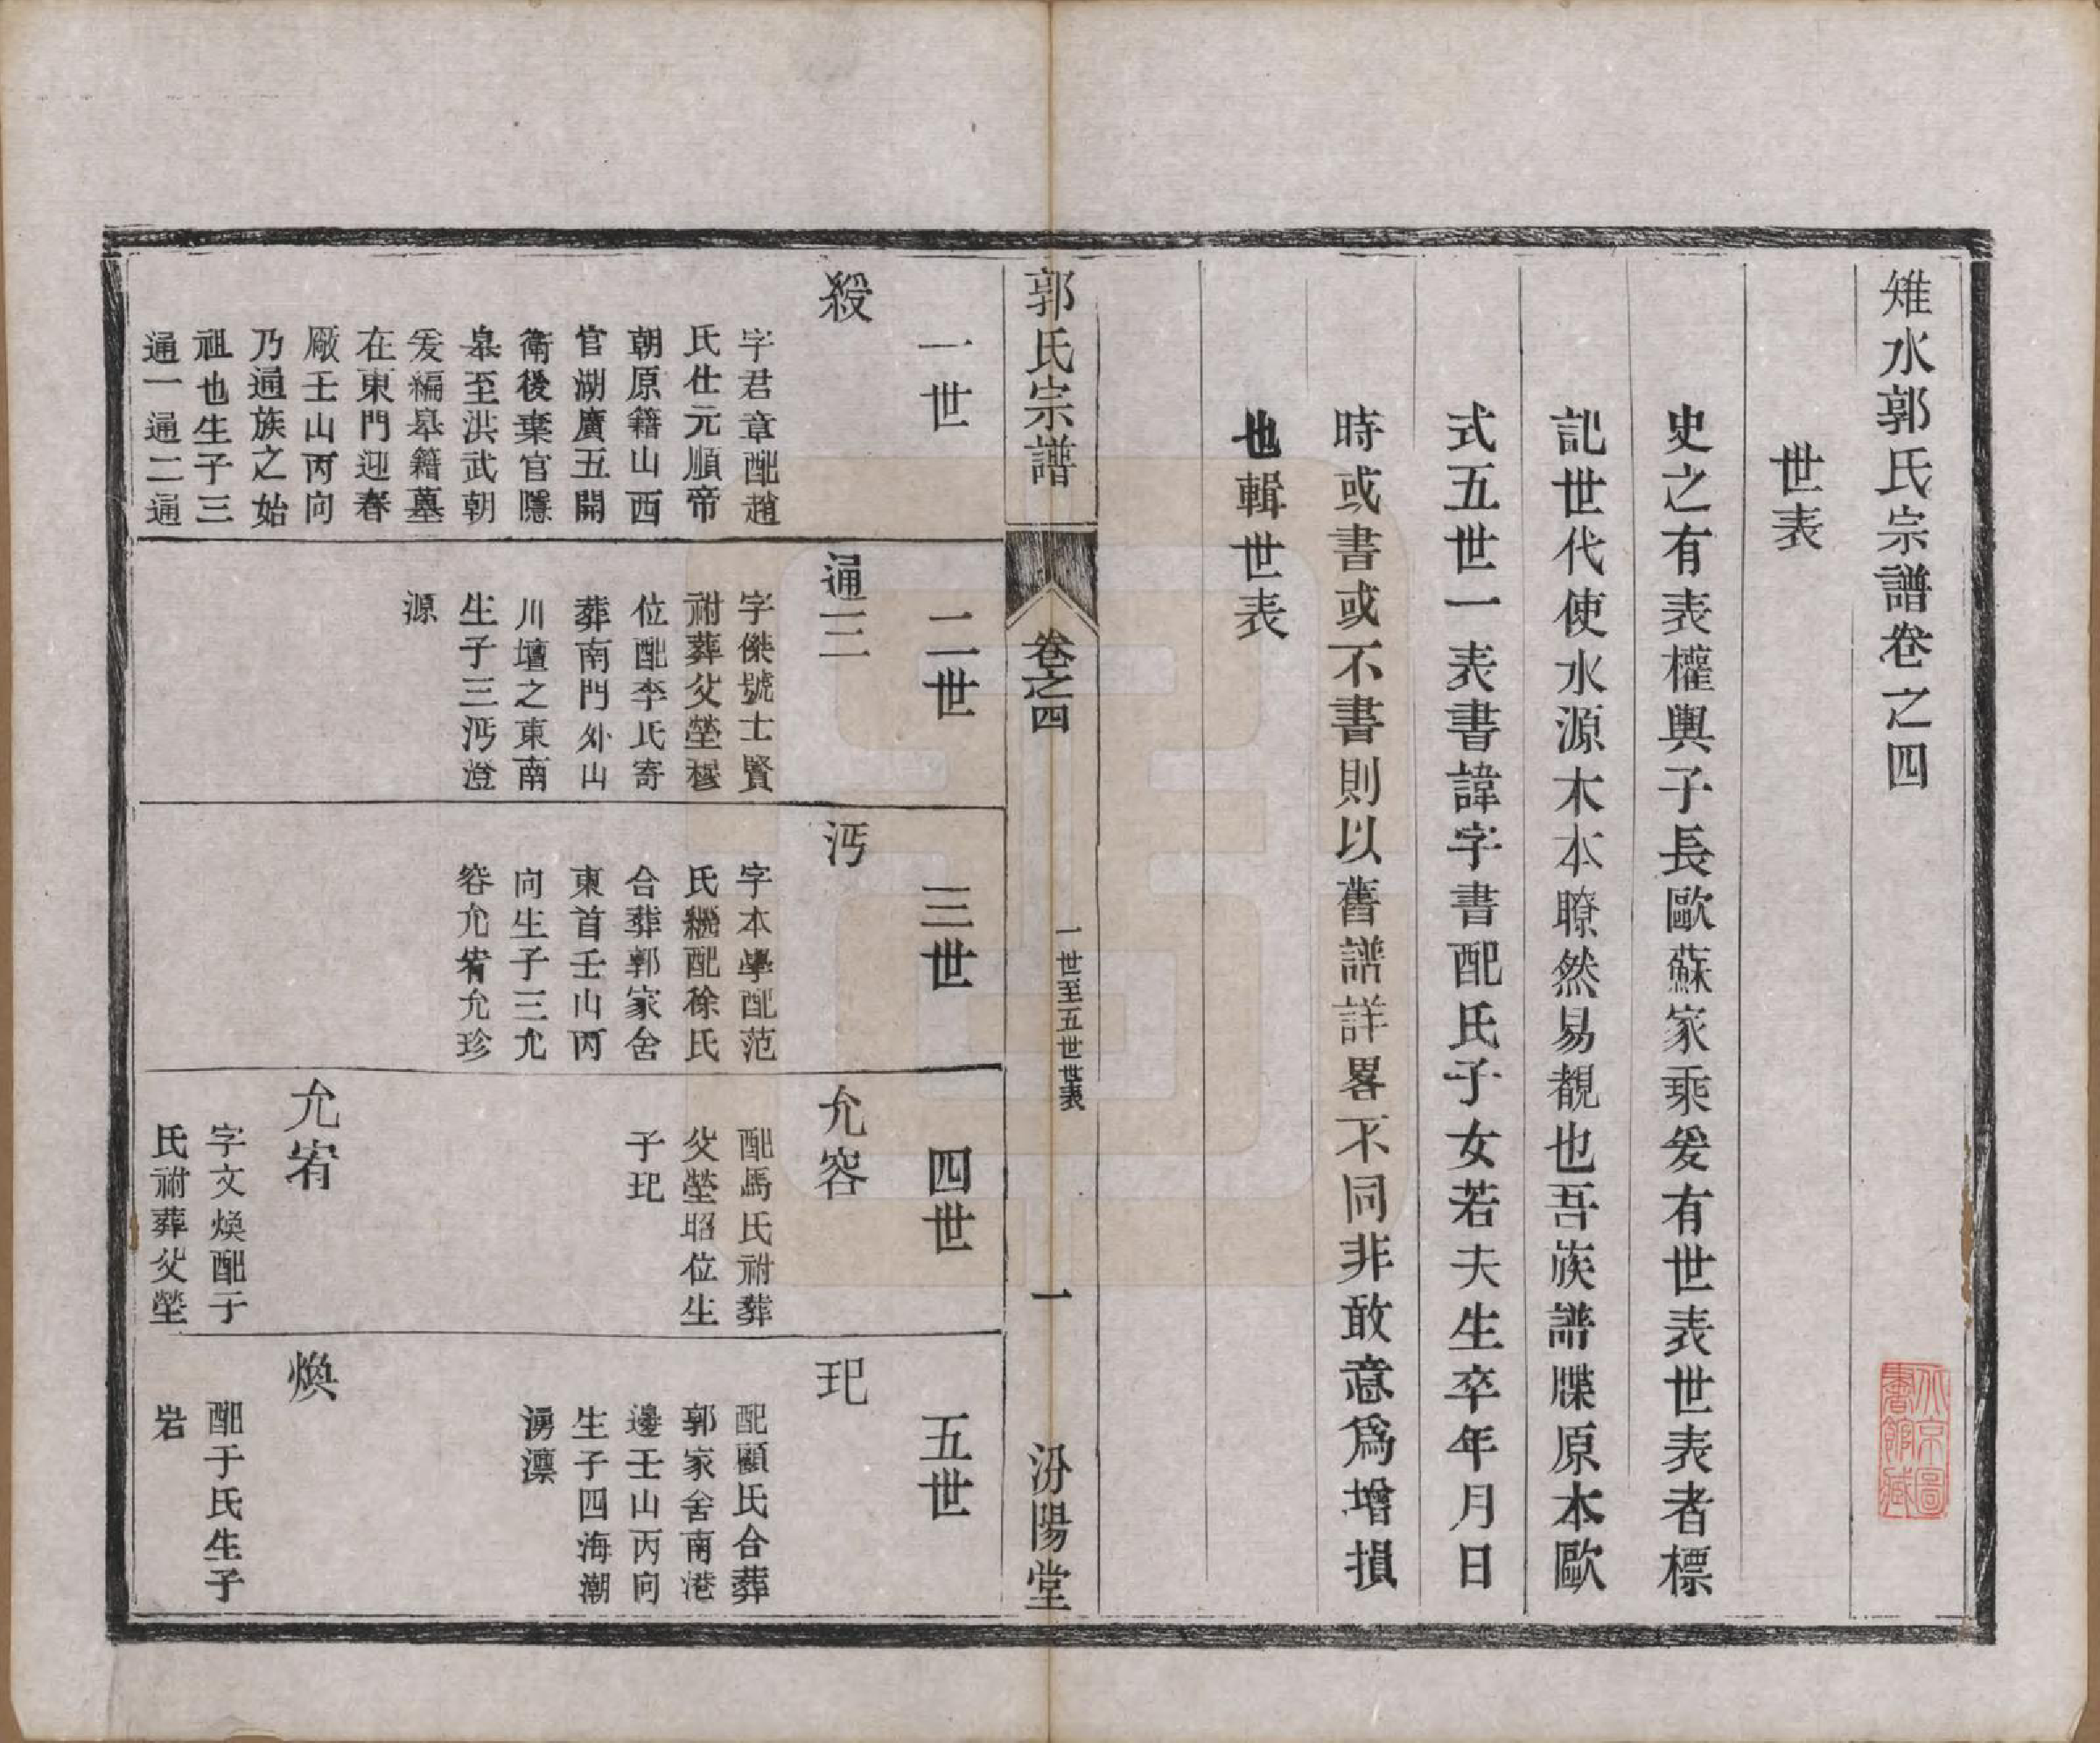 雉水郭氏宗譜卷之四
世表
史之有表權輿子長歐蘇家乘爰有世表世表者標
記世代使水源木本瞭然易覩也吾族譜牒原本歐
式五世一表書諱字書配氏子女若夫生卒年月日
時或書或不書則以舊譜詳畧不同非敢意爲增損
也輯世表
北京圖
書館藏
郭氏宗譜
卷之四
一世至五世世表
一
汾陽堂
一世
殺
字君章配趙
氏仕元順帝
朝原籍山西
官湖廣五開
衛後棄官隱
皋至洪武朝
爰編皋籍墓
在東門迎春
厰壬山丙向
乃通族之始
祖也生子三
通一通二通
二世
通三
字傑號士賢
祔葬父塋穆
位配李氏寄
葬南門外山
川壇之東南
生子三沔澄
源
三世
沔
字本學配范
氏繼配徐氏
合葬郭家舍
東首壬山丙
向生子三允
容允宥允珍
四世
允容
配馬氏祔葬
父塋昭位生
子玘
允宥
字文煥配于
氏祔葬父塋
五世
玘
配顧氏合葬
郭家舍南港
邊壬山丙向
生子四海潮
湧漂
煥
配于氏生子
岩